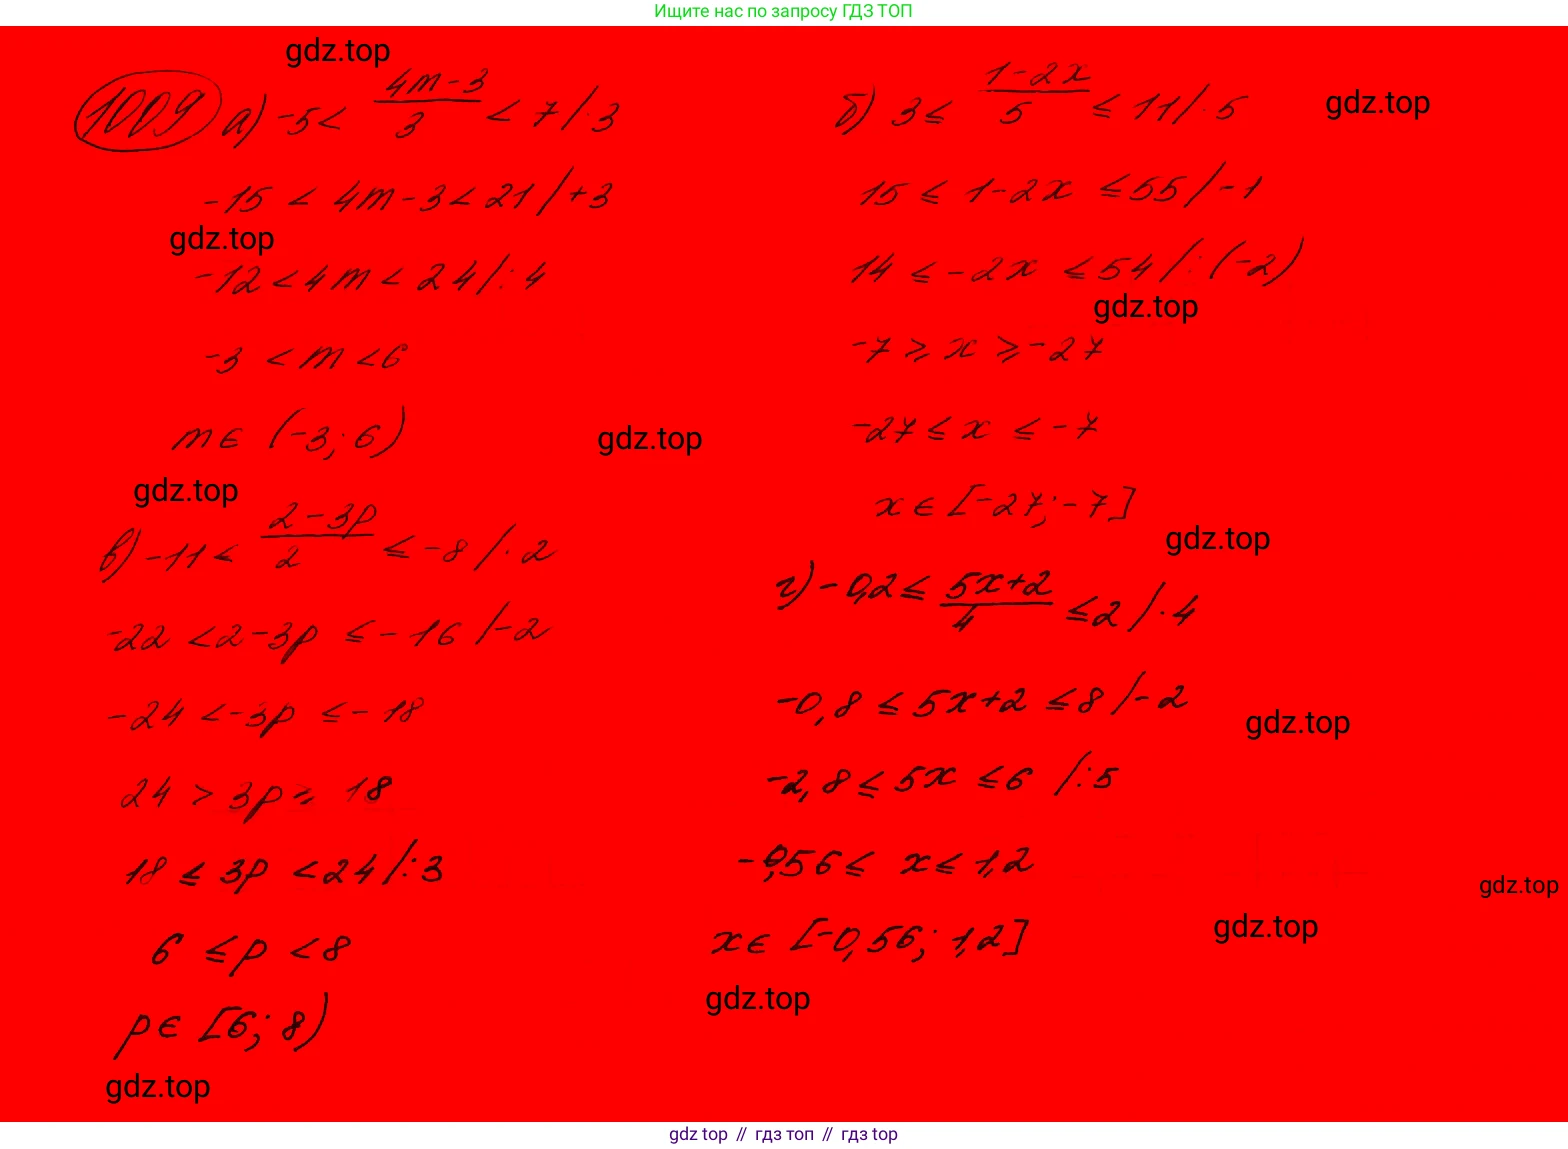 Ищите нас по запросу ГДЗ ТОП
gdz.top
1009 а) -5 < (4m-3)/3 < 7 /·3
-15 < 4m-3 < 21 /+3
gdz.top
-12 < 4m < 24 /:4
-3 < m < 6
m ∈ (-3; 6)
gdz.top
gdz.top
в) -11 < (2-3p)/2 ≤ -8 /·2
-22 < 2-3p ≤ -16 /-2
-24 < -3p ≤ -18
24 > 3p ≥ 18
18 ≤ 3p < 24 /:3
6 ≤ p < 8
p ∈ [6; 8)
gdz.top
б) 3 ≤ (1-2x)/5 ≤ 11 /·5
gdz.top
15 ≤ 1-2x ≤ 55 /-1
14 ≤ -2x ≤ 54 /:(-2)
gdz.top
-7 ≥ x ≥ -27
-27 ≤ x ≤ -7
x ∈ [-27; -7]
gdz.top
г) -0,2 ≤ (5x+2)/4 ≤ 2 /·4
-0,8 ≤ 5x+2 ≤ 8 /-2
gdz.top
-2,8 ≤ 5x ≤ 6 /:5
-0,56 ≤ x ≤ 1,2
gdz.top
gdz.top
x ∈ [-0,56; 1,2]
gdz.top
gdz top // гдз топ // гдз top